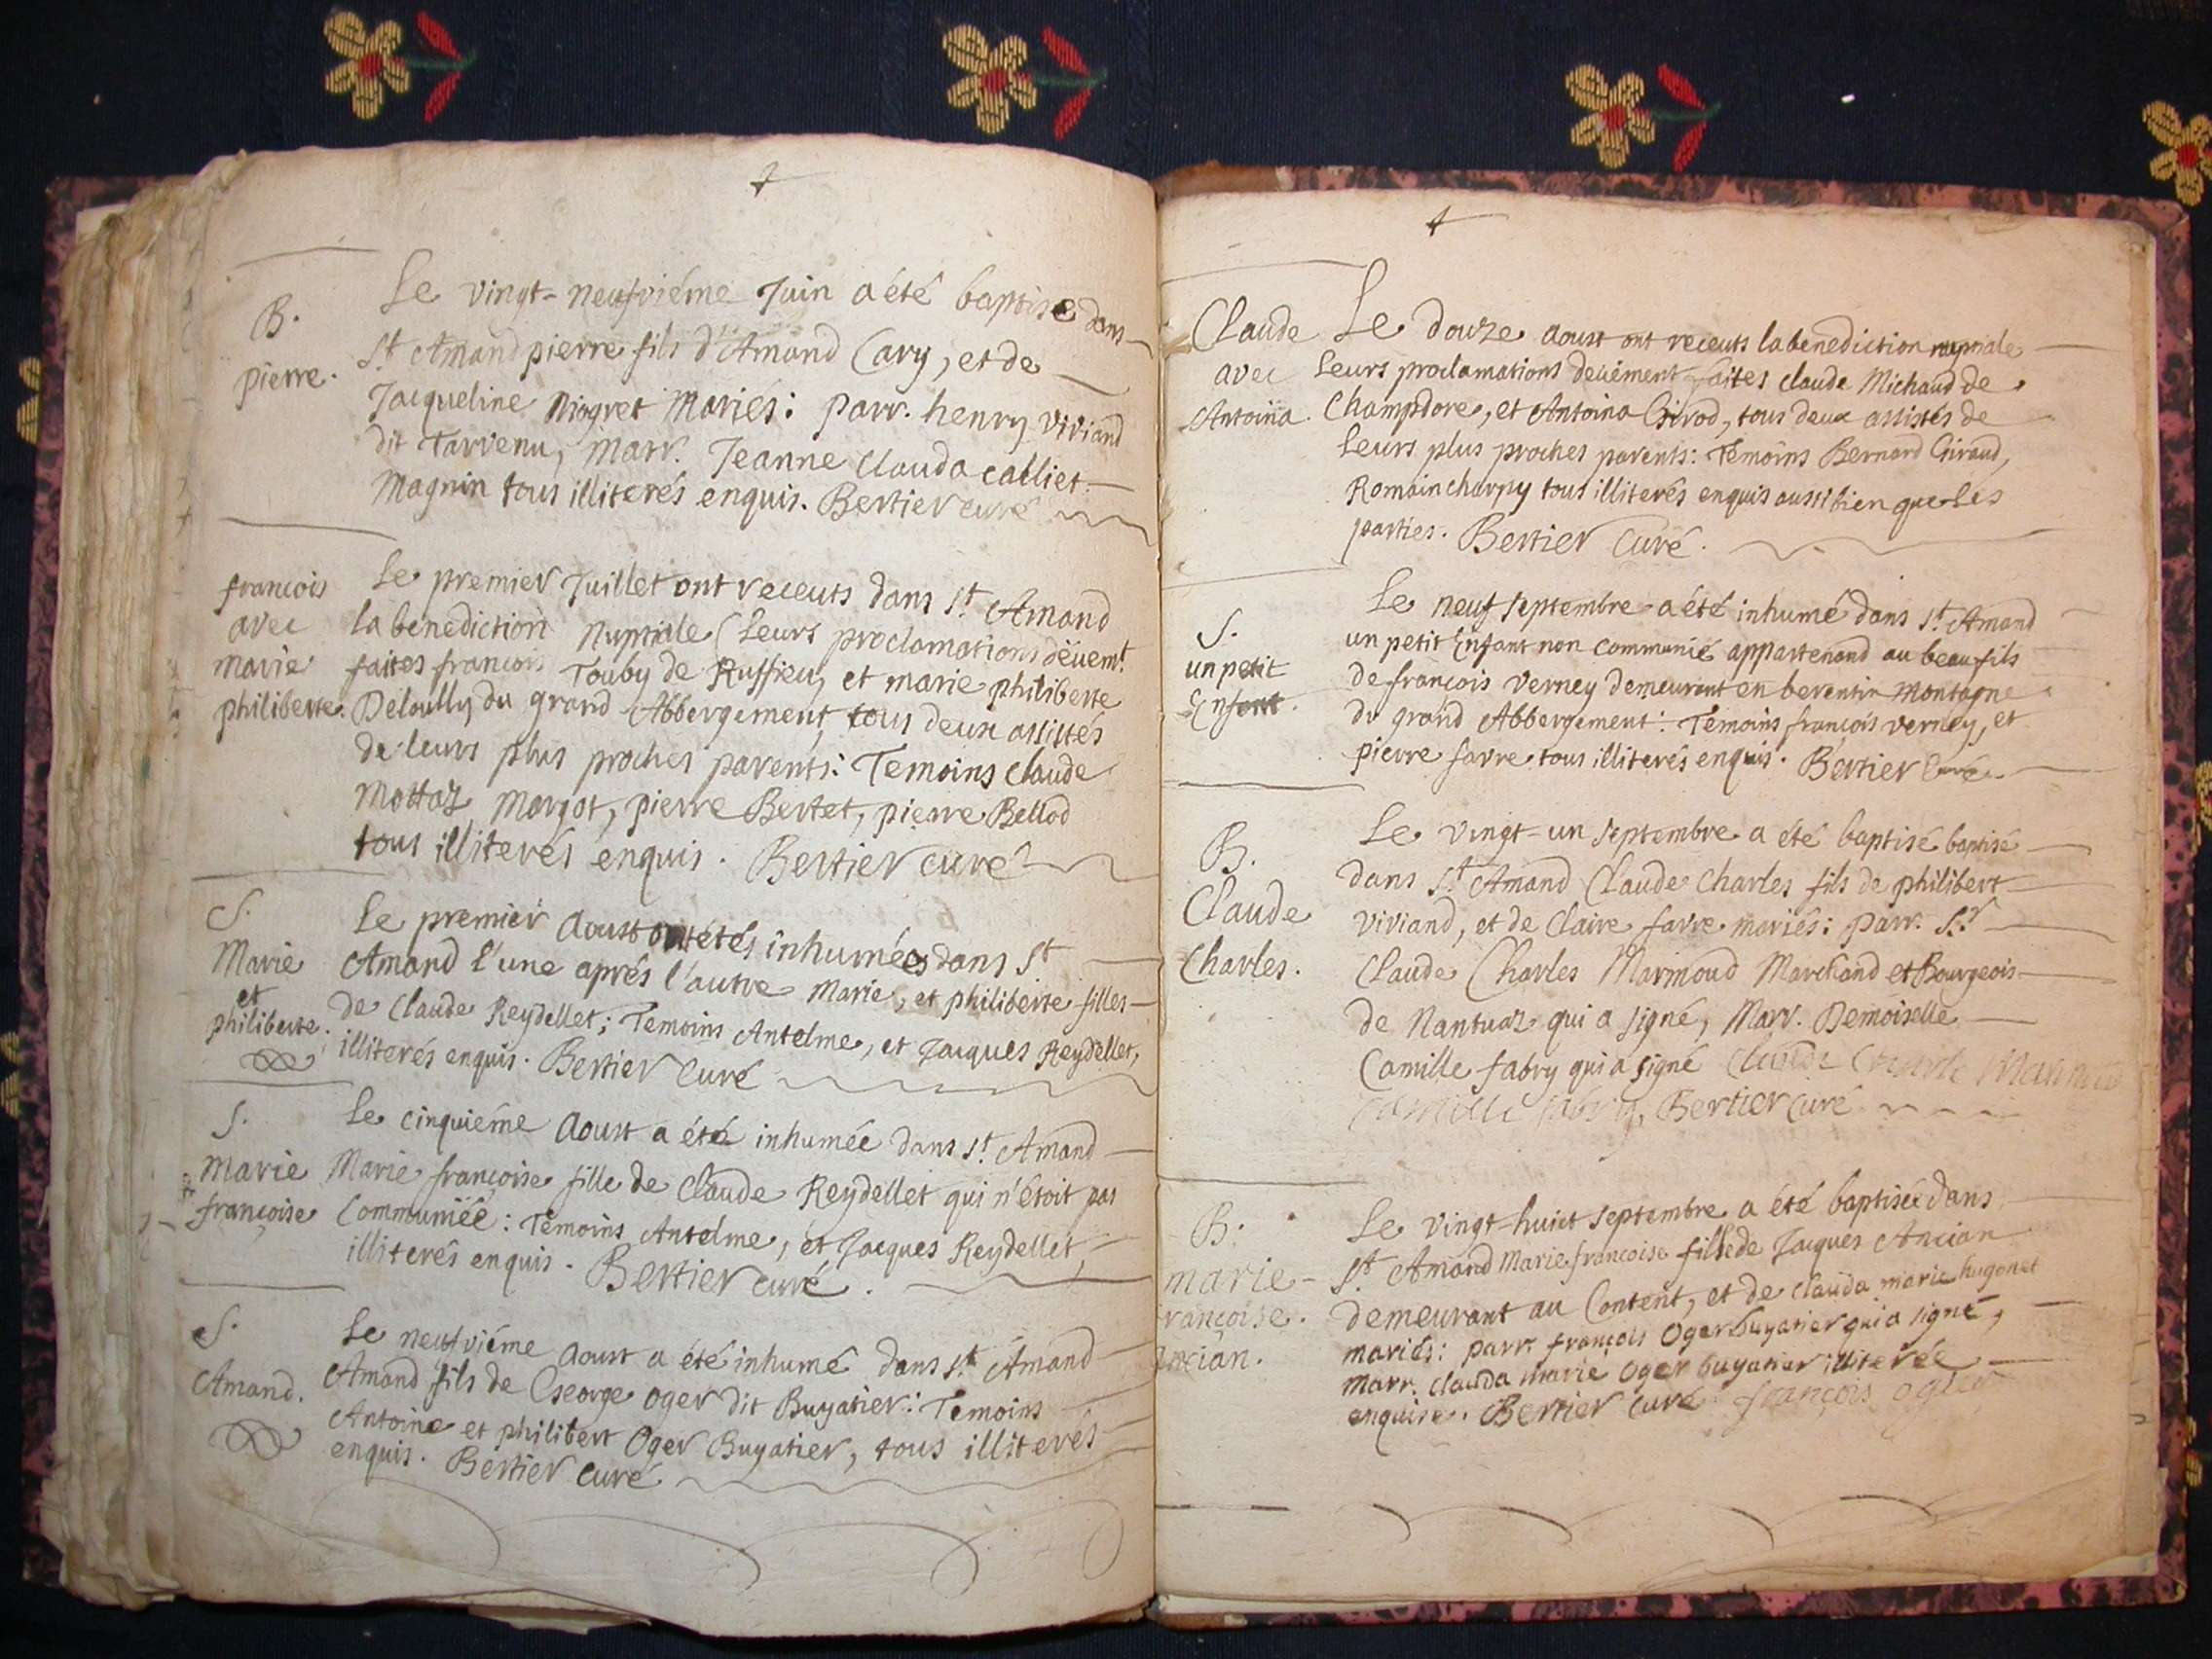 B.
pierre.
Le vingt-neufviéme Juin a été baptisé dans
St Amand pierre fils d'Amand Cary, et de
Jacqueline Niogret Mariés: parr. henry Viviand
dit Tarvenu, marr. Jeanne Clauda Calliet
Magnin tous illiterés enquis. Bertier curé
francois
avec
marie
philiberte.
Le premier Juillet ont receuts dans St Amand
la benediction Nuptiale (Leurs proclamations deüemt
faites francois Touby de Ruffieu, et marie philiberte
Deloully du grand Abbergement, tous deux assistés
de leurs plus proches parents: Temoins Claude
Mottaz, Margot, pierre Bertet, pierre Bellod
tous illiterés enquis. Bertier curé
S.
Marie
et
philiberte.
Le premier Aoust ont étés inhumées dans St
Amand l'une aprés l'autre Marie, et philiberte filles
de Claude Reydellet; Temoins Antelme, et Jacques Reydellet,
illiterés enquis. Bertier Curé
S.
Marie
françoise
Le cinquiéme Aoust a été inhumée dans St Amand
Marie françoise fille de Claude Reydellet qui n'étoit pas
Communiée: Temoins Antelme, et Jacques Reydellet,
illiterés enquis. Bertier curé.
S.
Amand.
Le neufviéme Aoust a été inhumé dans St Amand
Amand fils de George Oger dit Buyatier: Temoins
Antoine et philibert Oger Buyatier, tous illiterés
enquis. Bertier curé
Claude
avec
Antoina.
Le douze Aoust ont receuts la benediction nuptiale
Leurs proclamations deüement faites Claude Michaud de
Champdore, et Antoina Girod, tous deux assistés de
Leurs plus proches parents: Temoins Bernard Giraud,
Romain charpy tous illiterés enquis aussi bien que Les
parties. Bertier Curé.
S.
un petit
Enfant.
Le neuf septembre a été inhumé dans St Amand
un petit Enfant non Communié appartenand au beau fils
de françois Verney demeurant en berentin Montagne
du grand Abbergement: Temoins françois verney, et
pierre favre tous illiterés enquis. Bertier Curé
B.
Claude
Charles.
Le vingt-un septembre a été baptisé baptisé
dans St Amand Claude Charles fils de philibert
Viviand, et de Claire favre mariés: parr. Sr
Claude Charles Marmoud Marchand et Bourgeois
de Nantuaz qui a signé, Marr. Demoiselle
Camille fabry qui a signé Claude
Camille fabry, Bertier Curé
B.
marie-
françoise.
Ancian.
Le vingt-huict septembre a été baptisée dans
St Amand Marie françoise fille de Jacques Ancian
demeurant au Content, et de Clauda marie hugonet
mariés: parr. françois Oger buyatier qui a signé,
marr. Clauda marie Oger buyatier illiterée
enquise. Bertier curé françois ogier